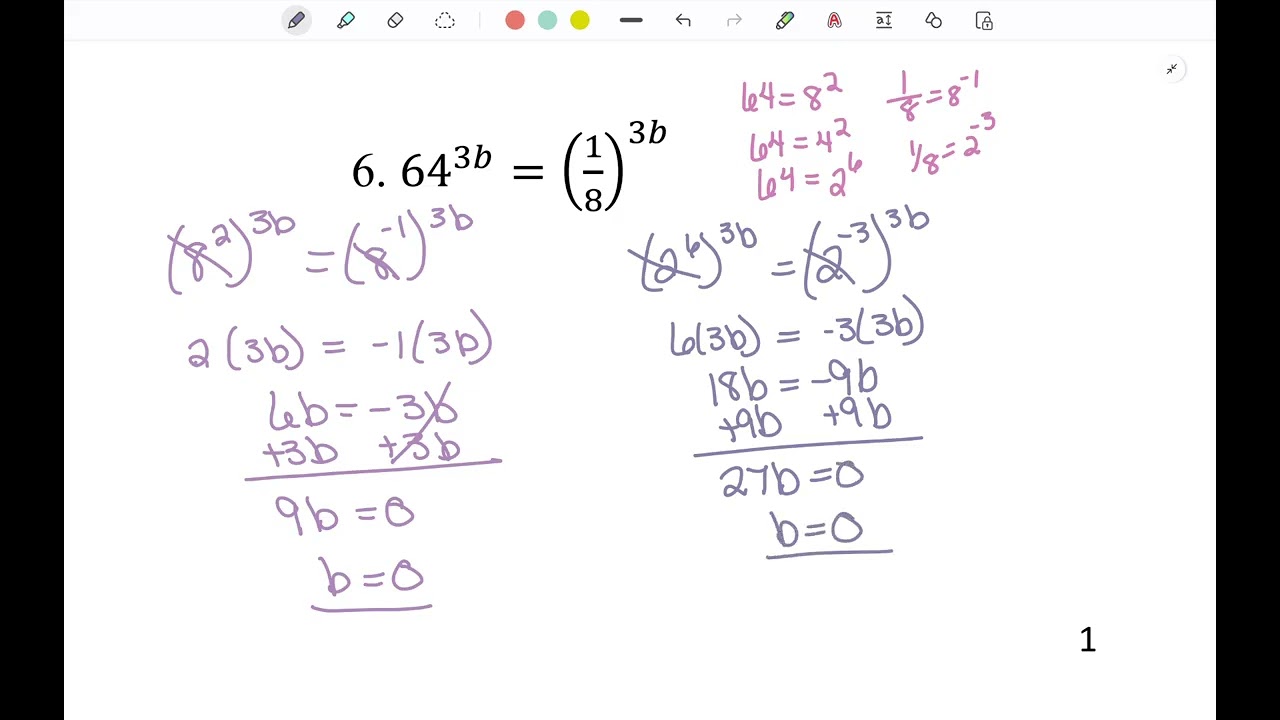 6. 64^{3b} = (1/8)^{3b}
64 = 8^2
1/8 = 8^{-1}
64 = 4^2
1/8 = 2^{-3}
64 = 2^6
(8^2)^{3b} = (8^{-1})^{3b}
2(3b) = -1(3b)
6b = -3b
+3b +3b
9b = 0
b = 0
(2^6)^{3b} = (2^{-3})^{3b}
6(3b) = -3(3b)
18b = -9b
+9b +9b
27b = 0
b = 0
1